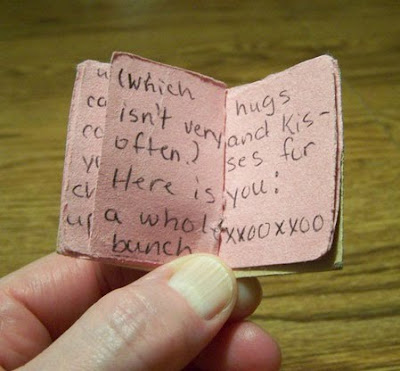 (which
isn't very
often.)
Here is
a whole
bunch
hugs
and kis-
ses for
you:
xxooxxoo